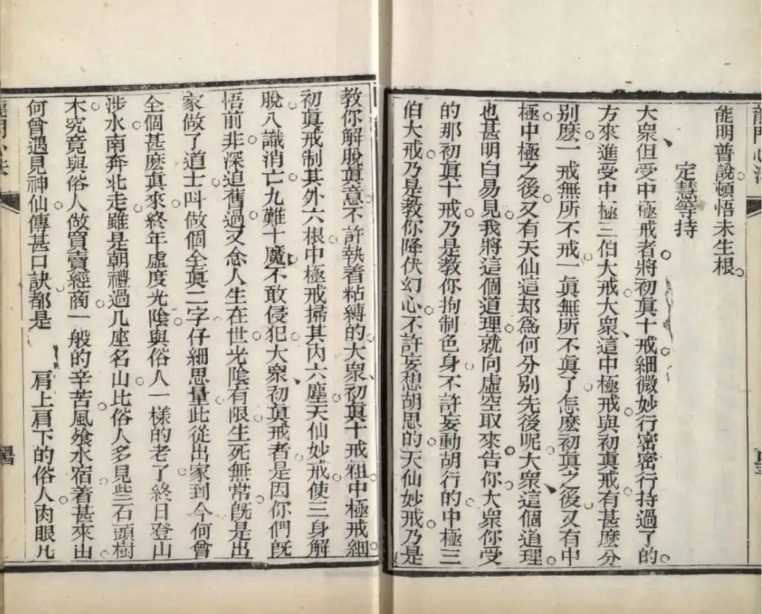 能明普說頓悟未生根
定慧等持
大衆但受中極戒者將初眞十戒細微妙行密密行持過了的
方來進受中極三伯大戒大衆這中極戒與初眞戒有甚麽分
別麽一戒無所不戒一眞無所不眞了怎麽初眞之後又有中
極中極之後又有天仙這却爲何分別先後呢大衆這個道理
也甚明白易見我將這個道理就向虛空取來告你大衆你受
的那初眞十戒乃是教你拘制色身不許妄動胡行的中極三
伯大戒乃是教你降伏幻心不許妄想胡思的天仙妙戒乃是
教你解脫眞意不許執着枯縛的大衆初眞十戒粗中極戒細
初眞戒制其外六根中極戒掃其內六塵天仙妙戒使三身解
脫八識消亡九難十魔不敢侵犯大衆初眞戒者是因你們旣
悟前非深追舊過又念人生在世光陰有限生死無常旣是出
家做了道士呌做個全眞二字仔細思量此從出家到今何曾
全個甚麽眞來終年虛度光陰與俗人一樣的老了終日登山
涉水南奔北走雖是朝禮過几座名山比俗人多見些石頭樹
木究竟與俗人做買賣經商一般的辛苦風飡水宿着甚來由
何曾遇見神仙傳甚口訣都是 肩上肩下的俗人肉眼凡